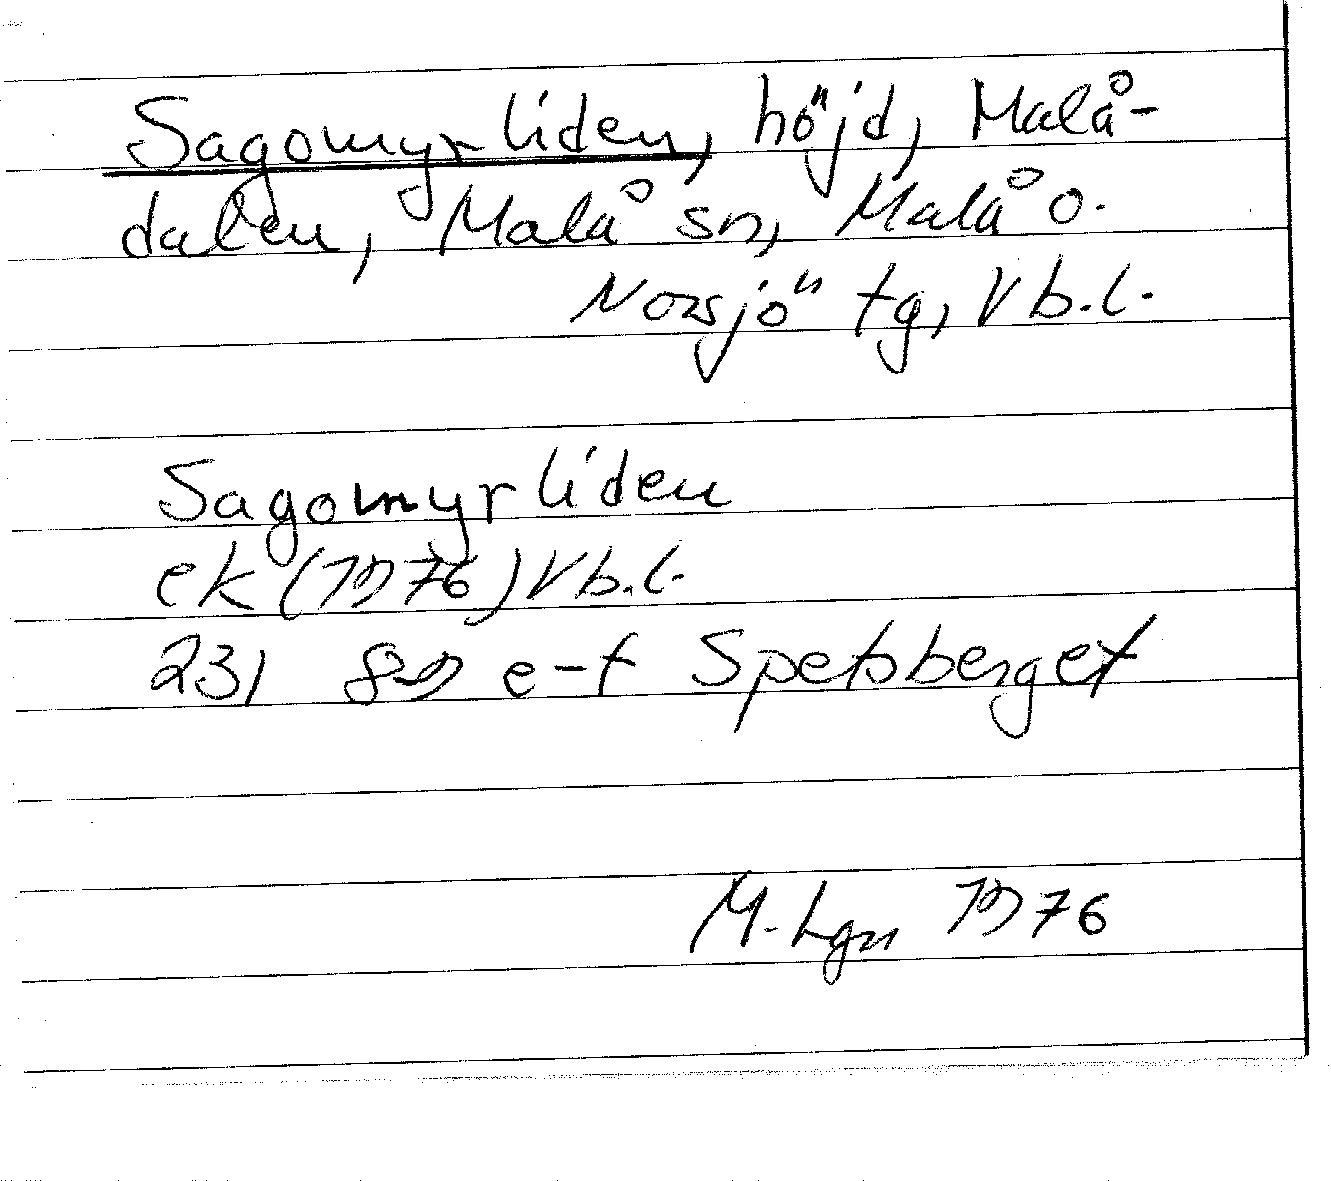 Sagomyrliden, höjd, Malå-
dalen, Malå sn, Malå o.
Norsjö tg, Vb.l.
Sagomyrliden
ek (1976) Vb.l.
231 89 e-f Spetsberget
M. Lgn 1976